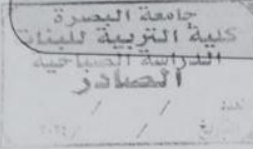 جامعة البصرة
كلية التربية للبنات
الدراسة الصباحية
الصادر
/ /